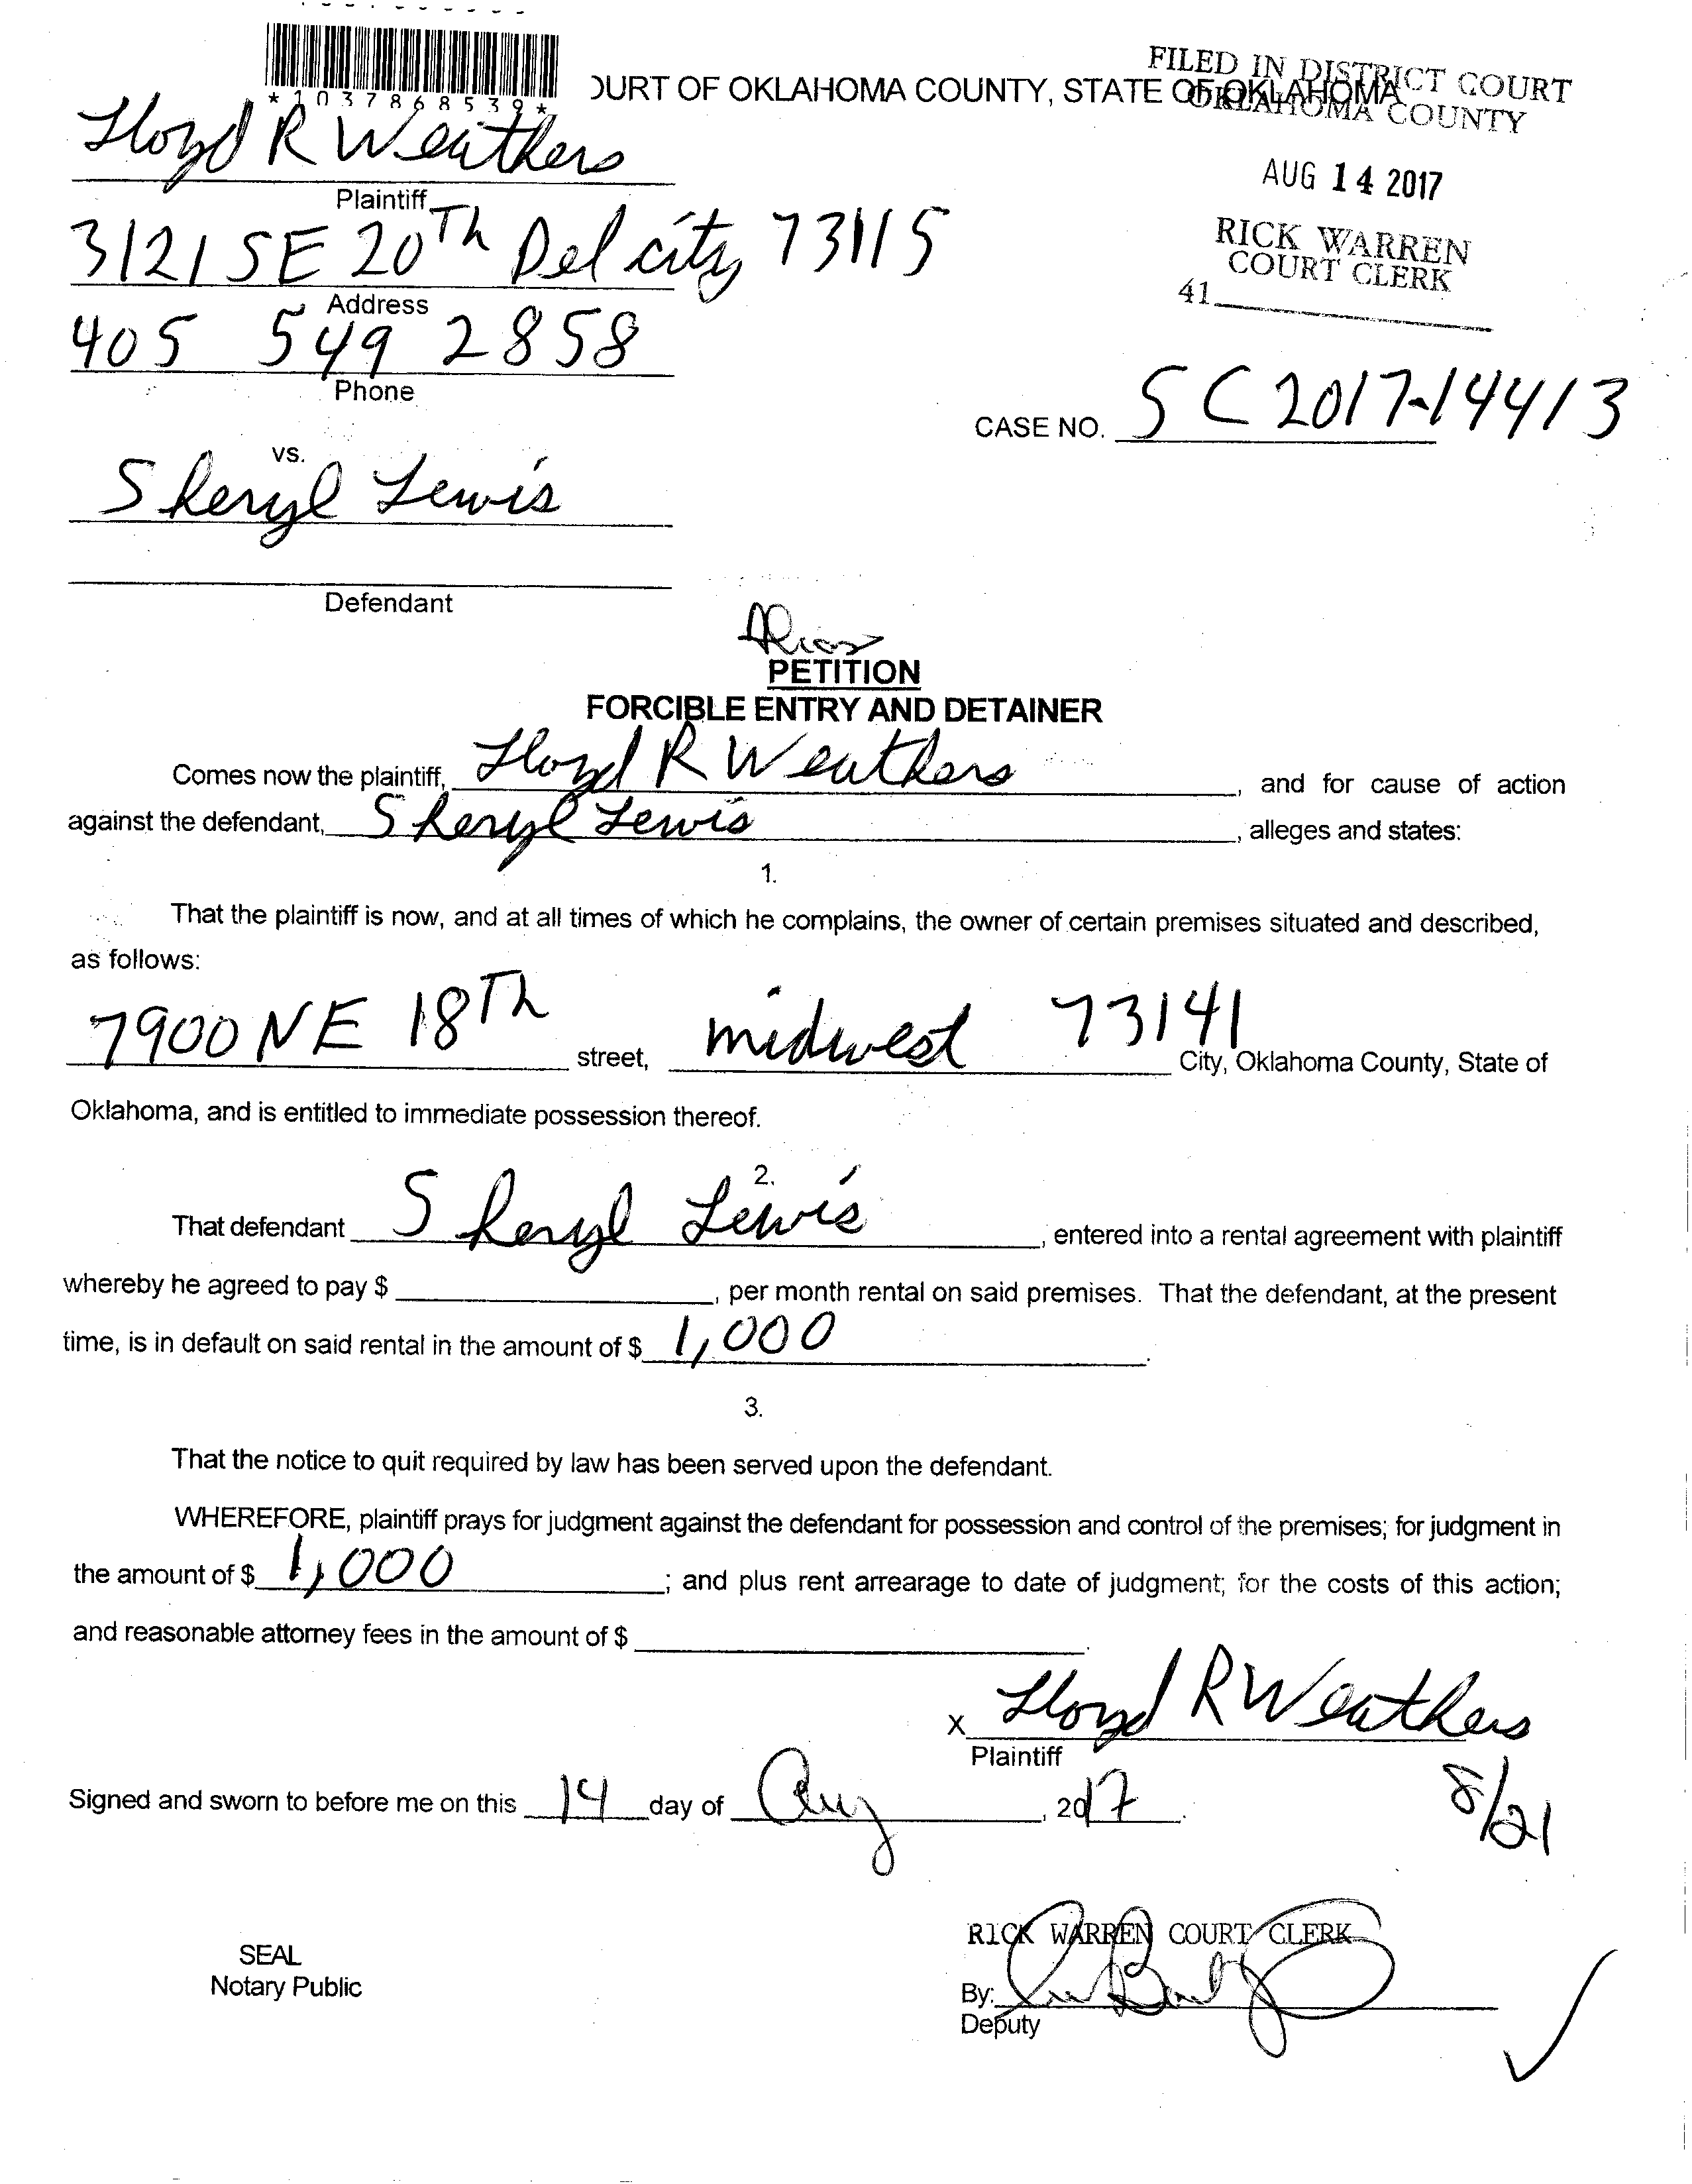 *1037868539*
OURT OF OKLAHOMA COUNTY, STATE OF OKLAHOMA
FILED IN DISTRICT COURT
OKLAHOMA COUNTY
AUG 14 2017
RICK WARREN
COURT CLERK
41
Lloyd R Weathers
Plaintiff
3121 SE 20Th Del city 73115
Address
405 549 2858
Phone
CASE NO. SC 2017-14413
vs.
Sheryl Lewis
Defendant
Alias
PETITION
FORCIBLE ENTRY AND DETAINER
Comes now the plaintiff, Lloyd R Weathers, and for cause of action
against the defendant, Sheryl Lewis, alleges and states:
1.
That the plaintiff is now, and at all times of which he complains, the owner of certain premises situated and described,
as follows:
7900 NE 18Th street, midwest 73141 City, Oklahoma County, State of
Oklahoma, and is entitled to immediate possession thereof.
2.
That defendant Sheryl Lewis, entered into a rental agreement with plaintiff
whereby he agreed to pay $, per month rental on said premises. That the defendant, at the present
time, is in default on said rental in the amount of $ 1,000.
3.
That the notice to quit required by law has been served upon the defendant.
WHEREFORE, plaintiff prays for judgment against the defendant for possession and control of the premises; for judgment in
the amount of $ 1,000; and plus rent arrearage to date of judgment; for the costs of this action;
and reasonable attorney fees in the amount of $.
X Lloyd R Weathers
Plaintiff
Signed and sworn to before me on this 14 day of Aug, 2017.
8/21
SEAL
Notary Public
RICK WARREN COURT CLERK
By:
Deputy